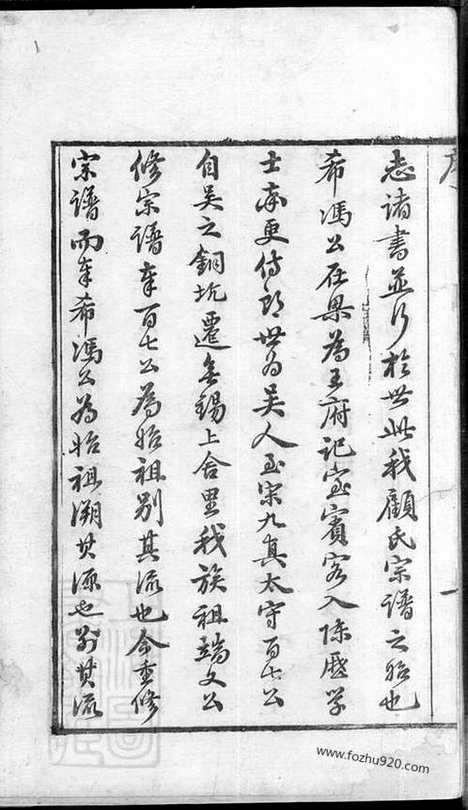 序
志諸書並行於世此我顧氏宗譜之始也
希馮公在梁為王府記室賓客入陳歷學
士奉更侍郎世為吳人至宋九真太守百七公
自吳之銅坑遷無錫上舍里我族祖端文公
修宗譜奉百七公為始祖别其流也今重修
宗譜而奉希馮公為始祖溯其源也别其流
一
www.fozhu920.com